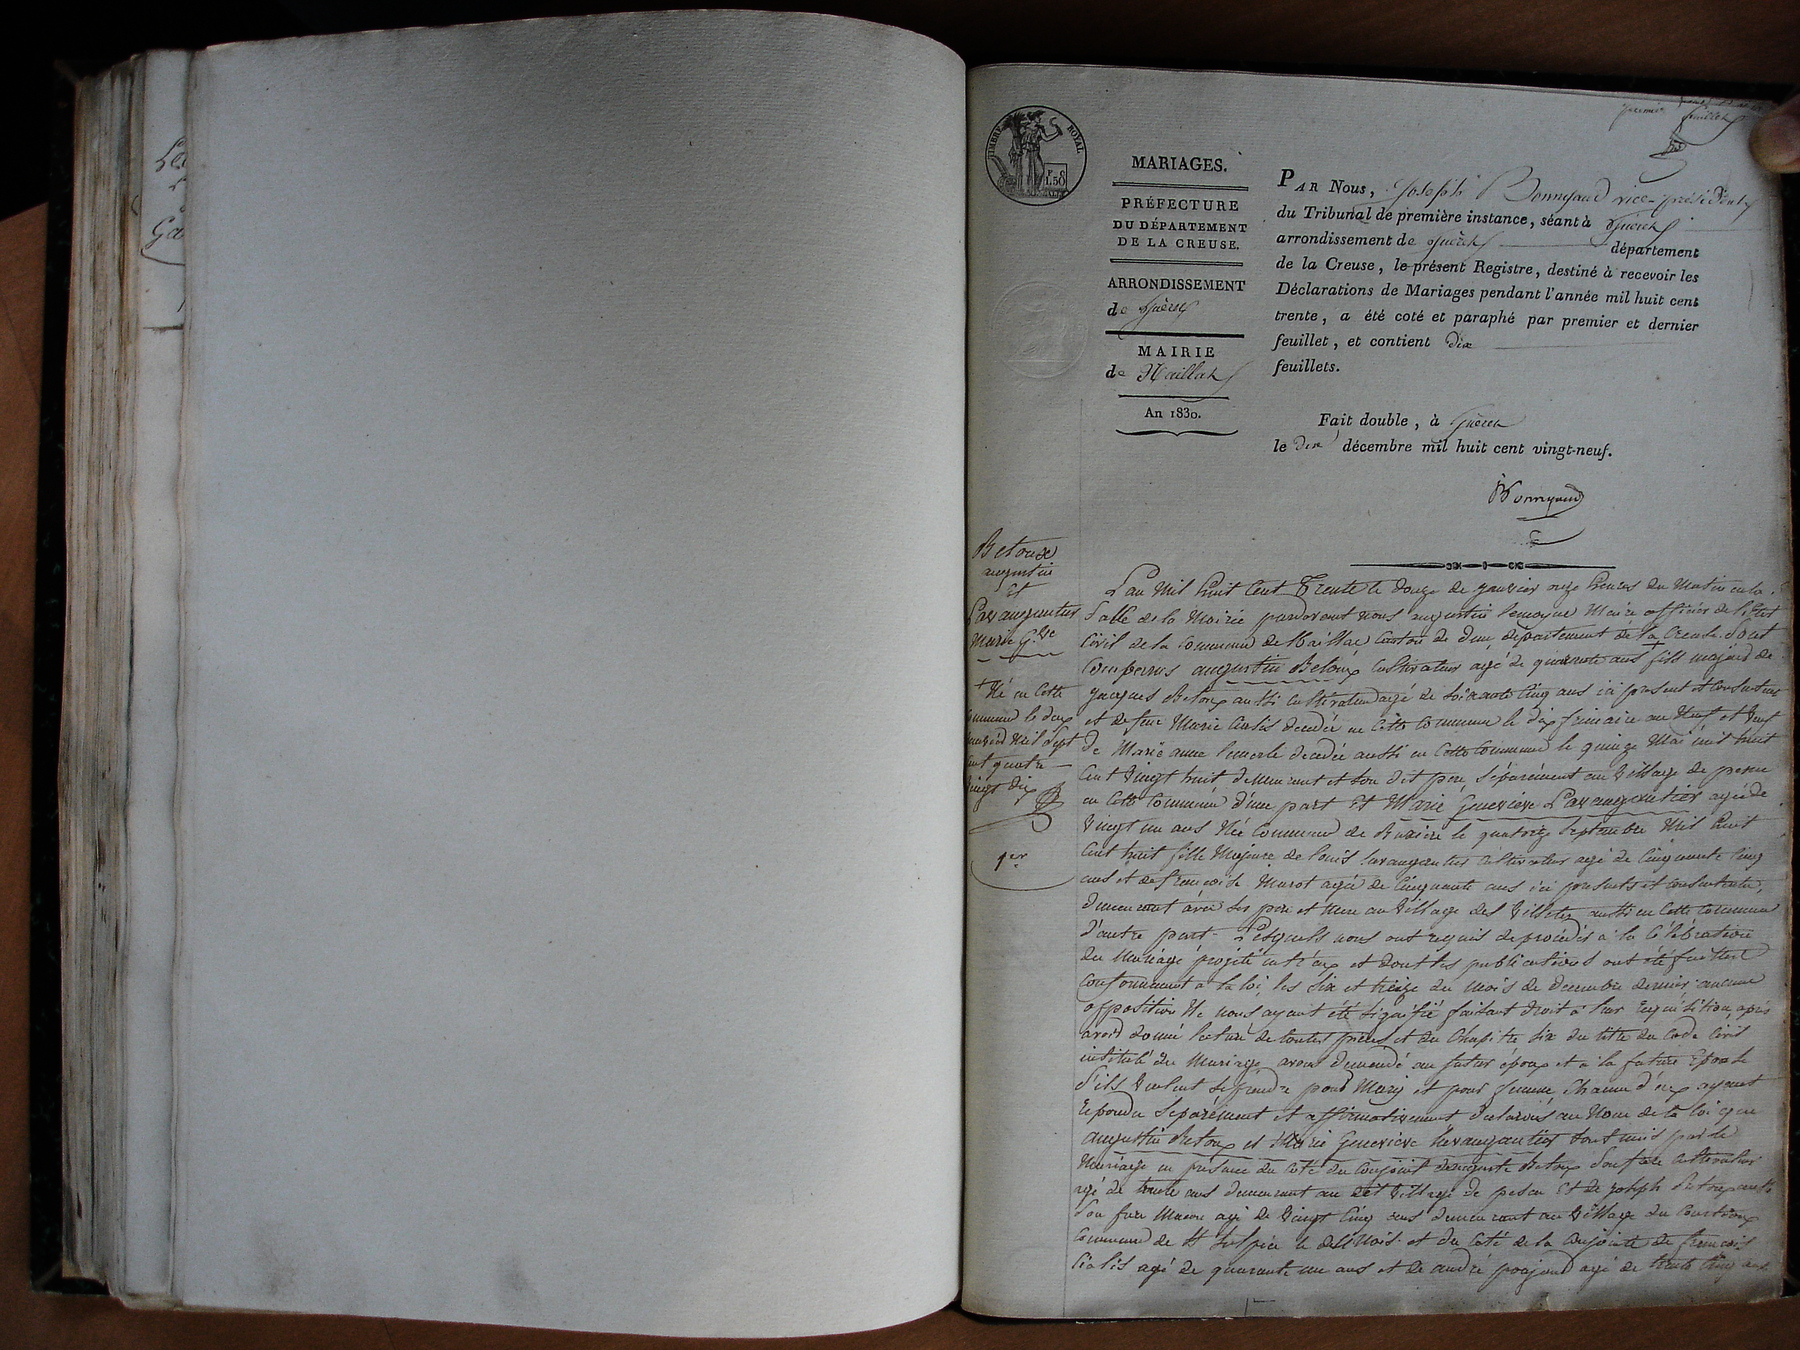 premier feuillet
TIMBRE ROYAL
MARIAGES.
PRÉFECTURE
DU DÉPARTEMENT
DE LA CREUSE.
ARRONDISSEMENT
de Guéret
MAIRIE
de Maillat
An 1830.
PAR Nous, Joseph Bonnyaud vice-président
du Tribunal de première instance, séant à Guéret
arrondissement de Guéret département
de la Creuse, le présent Registre, destiné à recevoir les
Déclarations de Mariages pendant l'année mil huit cent
trente, a été coté et paraphé par premier et dernier
feuillet, et contient dix
feuillets.
Fait double, à Guéret
le dix décembre mil huit cent vingt-neuf.
Bonnyaud
Betoux
augustin
et
Lavaugautier
Marie G.
+ Né en Cette
commune le deux
Mil Sept
cent quatre
vingt dix
1er
L'an Mil huit Cent Trente le douze de janvier onze heures du Matin en la
Salle de la Mairie pardevant nous augustin lemoyne Maire officier de l'Etat
Civil de la Commune de Maillat Canton de Dun, département de la Creuse. Sont
Comparus augustin Betoux Cultivateur agé de quarante ans + fils majeur de
jacques Betoux aussi Cultivateur agé de soixante Cinq ans ici présent et Consentant
et de feue Marie décédée en Cette Commune le dix frimaire an Neuf et Veuf
de Marie anne décédée aussi en Cette Commune le quinze Mai mil huit
Cent Vingt huit demeurant et son dit père, Séparément au Village de
en Cette Commune d'une part Et Marie Geneviève Lavaugautier agée de
Vingt un ans Née Commune de le quatorze Septembre Mil huit
Cent huit fille Majeure de louis lavaugautier Cultivateur agé de Cinquante Cinq
ans et de françoise Marot agée de Cinquante ans ici présents et consentants,
demeurant avec ses père et mère au Village des Villettes aussi en Cette Commune
d'autre part. Lesquels nous ont requis de procéder à la Célébration
du Mariage projeté entr'eux et dont les publications ont été faites
Conformément à la loi, les Six et treize du mois de Décembre dernier aucune
opposition Ne nous ayant été Signifié faisant droit à leur Requisition, après
avoir donné lecture de toutes pièces et du Chapitre Six du titre du Code Civil
intitulé du Mariage avons demandé au futur époux et à la future Epouse
S'ils Veulent se prendre pour Mary et pour femme, Chacun d'eux ayant
Répondu Séparément et affirmativement déclarons au Nom de la loi que
augustin Betoux et Marie Geneviève lavaugautier Sont unis par le
Mariage en présence du Coté du Conjoint Betoux Son frère Cultivateur
agé de trente ans demeurant au dit Village de et de joseph Betoux aussi
Son frère Maçon agé de Vingt Cinq ans demeurant au Village du
Commune de St Sulpice le et du Coté de la Conjointe de françois
agé de quarante un ans et de andré agé de trente Cinq ans